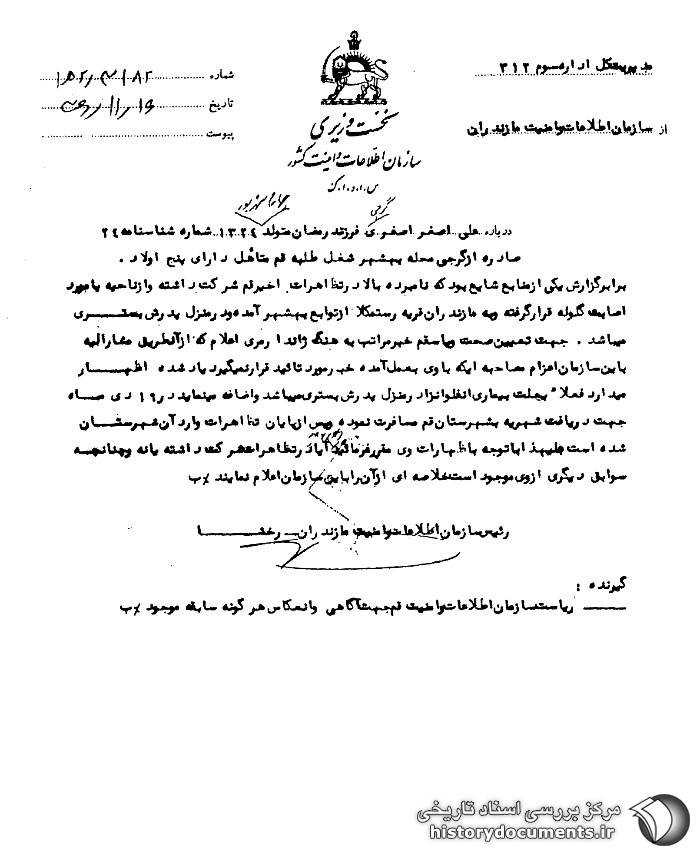 مدیریت کل اداره سوم ۳۱۲
شماره
تاریخ
پیوست
از سازمان اطلاعات و امنیت مازندران
نخست وزیری
سازمان اطلاعات و امنیت کشور
س.ا.و.ا.ک
درباره علی اصغر اصغری گرجی فرزند رمضان متولد ۱۳۲۴ شماره شناسنامه ۲۴
صادره از گرجی محله بهشهر شغل طلبه قم متأهل دارای پنج اولاد .
برابر گزارش یکی از منابع شایع بود که نامبرده بالا در تظاهرات اخیر قم شرکت داشته و از ناحیه پا مورد
اصابت گلوله قرار گرفته و به مازندران قریه رستمکلا از توابع بهشهر آمده و در منزل پدرش بستری
میباشد . جهت تعیین صحت و یا سقم خبر مراتب به هنگ ژاندارمری اعلام که از آنطریق مشارالیه
باین سازمان اعزام مصاحبه ایکه باوی بعمل آمده خبر مورد تائید قرار نمیگیرد یاد شده اظهار
میدارد فعلا" بعلت بیماری انفلوانزا در منزل پدرش بستری میباشد و اضافه مینماید در ۱۹ دی ماه
جهت دریافت شهریه بشهرستان قم مسافرت نموده و پس از پایان تظاهرات وارد آن شهرستان
شده است علیهذا با توجه باظهارات وی مقرر فرمائید آیا در تظاهرات شرکت داشته یا نه و چنانچه
سوابق دیگری از وی موجود است خلاصه ای از آن را باین سازمان اعلام نمایند /ب
رئیس سازمان اطلاعات و امنیت مازندران - رخشا
گیرنده :
ریاست سازمان اطلاعات و امنیت قم جهت آگاهی و انعکاس هر گونه سابقه موجود /ب
مرکز بررسی اسناد تاریخی
historydocuments.ir